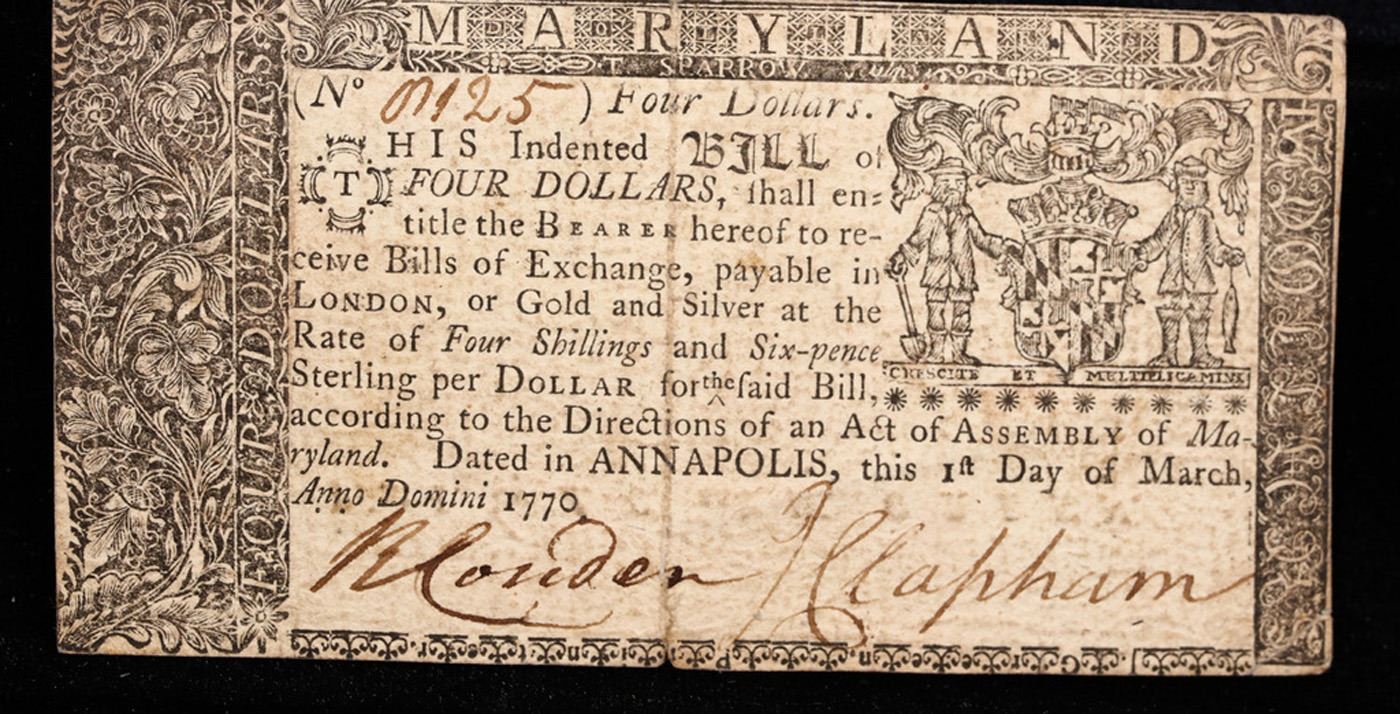 MARYLAND
T. SPARROW. sculpsit
(No 125) Four Dollars.
THIS Indented BILL of
FOUR DOLLARS, ſhall en=
title the BEARER hereof to re-
ceive Bills of Exchange, payable in
LONDON, or Gold and Silver at the
Rate of Four Shillings and Six-pence
Sterling per DOLLAR for the ſaid Bill,
according to the Directions of an Act of ASSEMBLY of Ma-
ryland. Dated in ANNAPOLIS, this 1ſt Day of March,
Anno Domini 1770.
R Couden J Clapham
CRESCITE ET MULTIPLICAMINI
FOUR DOLLARS